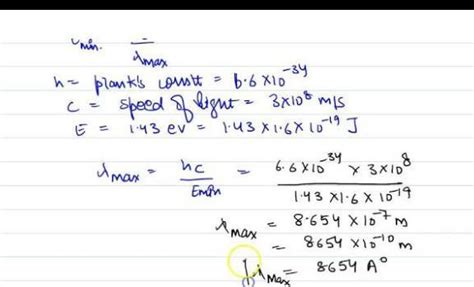 min. =
λmax
h = plank's constt = 6.6 × 10⁻³⁴
c = speed of light = 3×10⁸ m/s
E = 1.43 ev = 1.43 × 1.6 × 10⁻¹⁹ J
λmax = hc / Emin = 6.6 × 10⁻³⁴ × 3 × 10⁸ / 1.43 × 1.6 × 10⁻¹⁹
λmax = 8.654 × 10⁻⁷ m
= 8654 × 10⁻¹⁰ m
λmax = 8654 A°